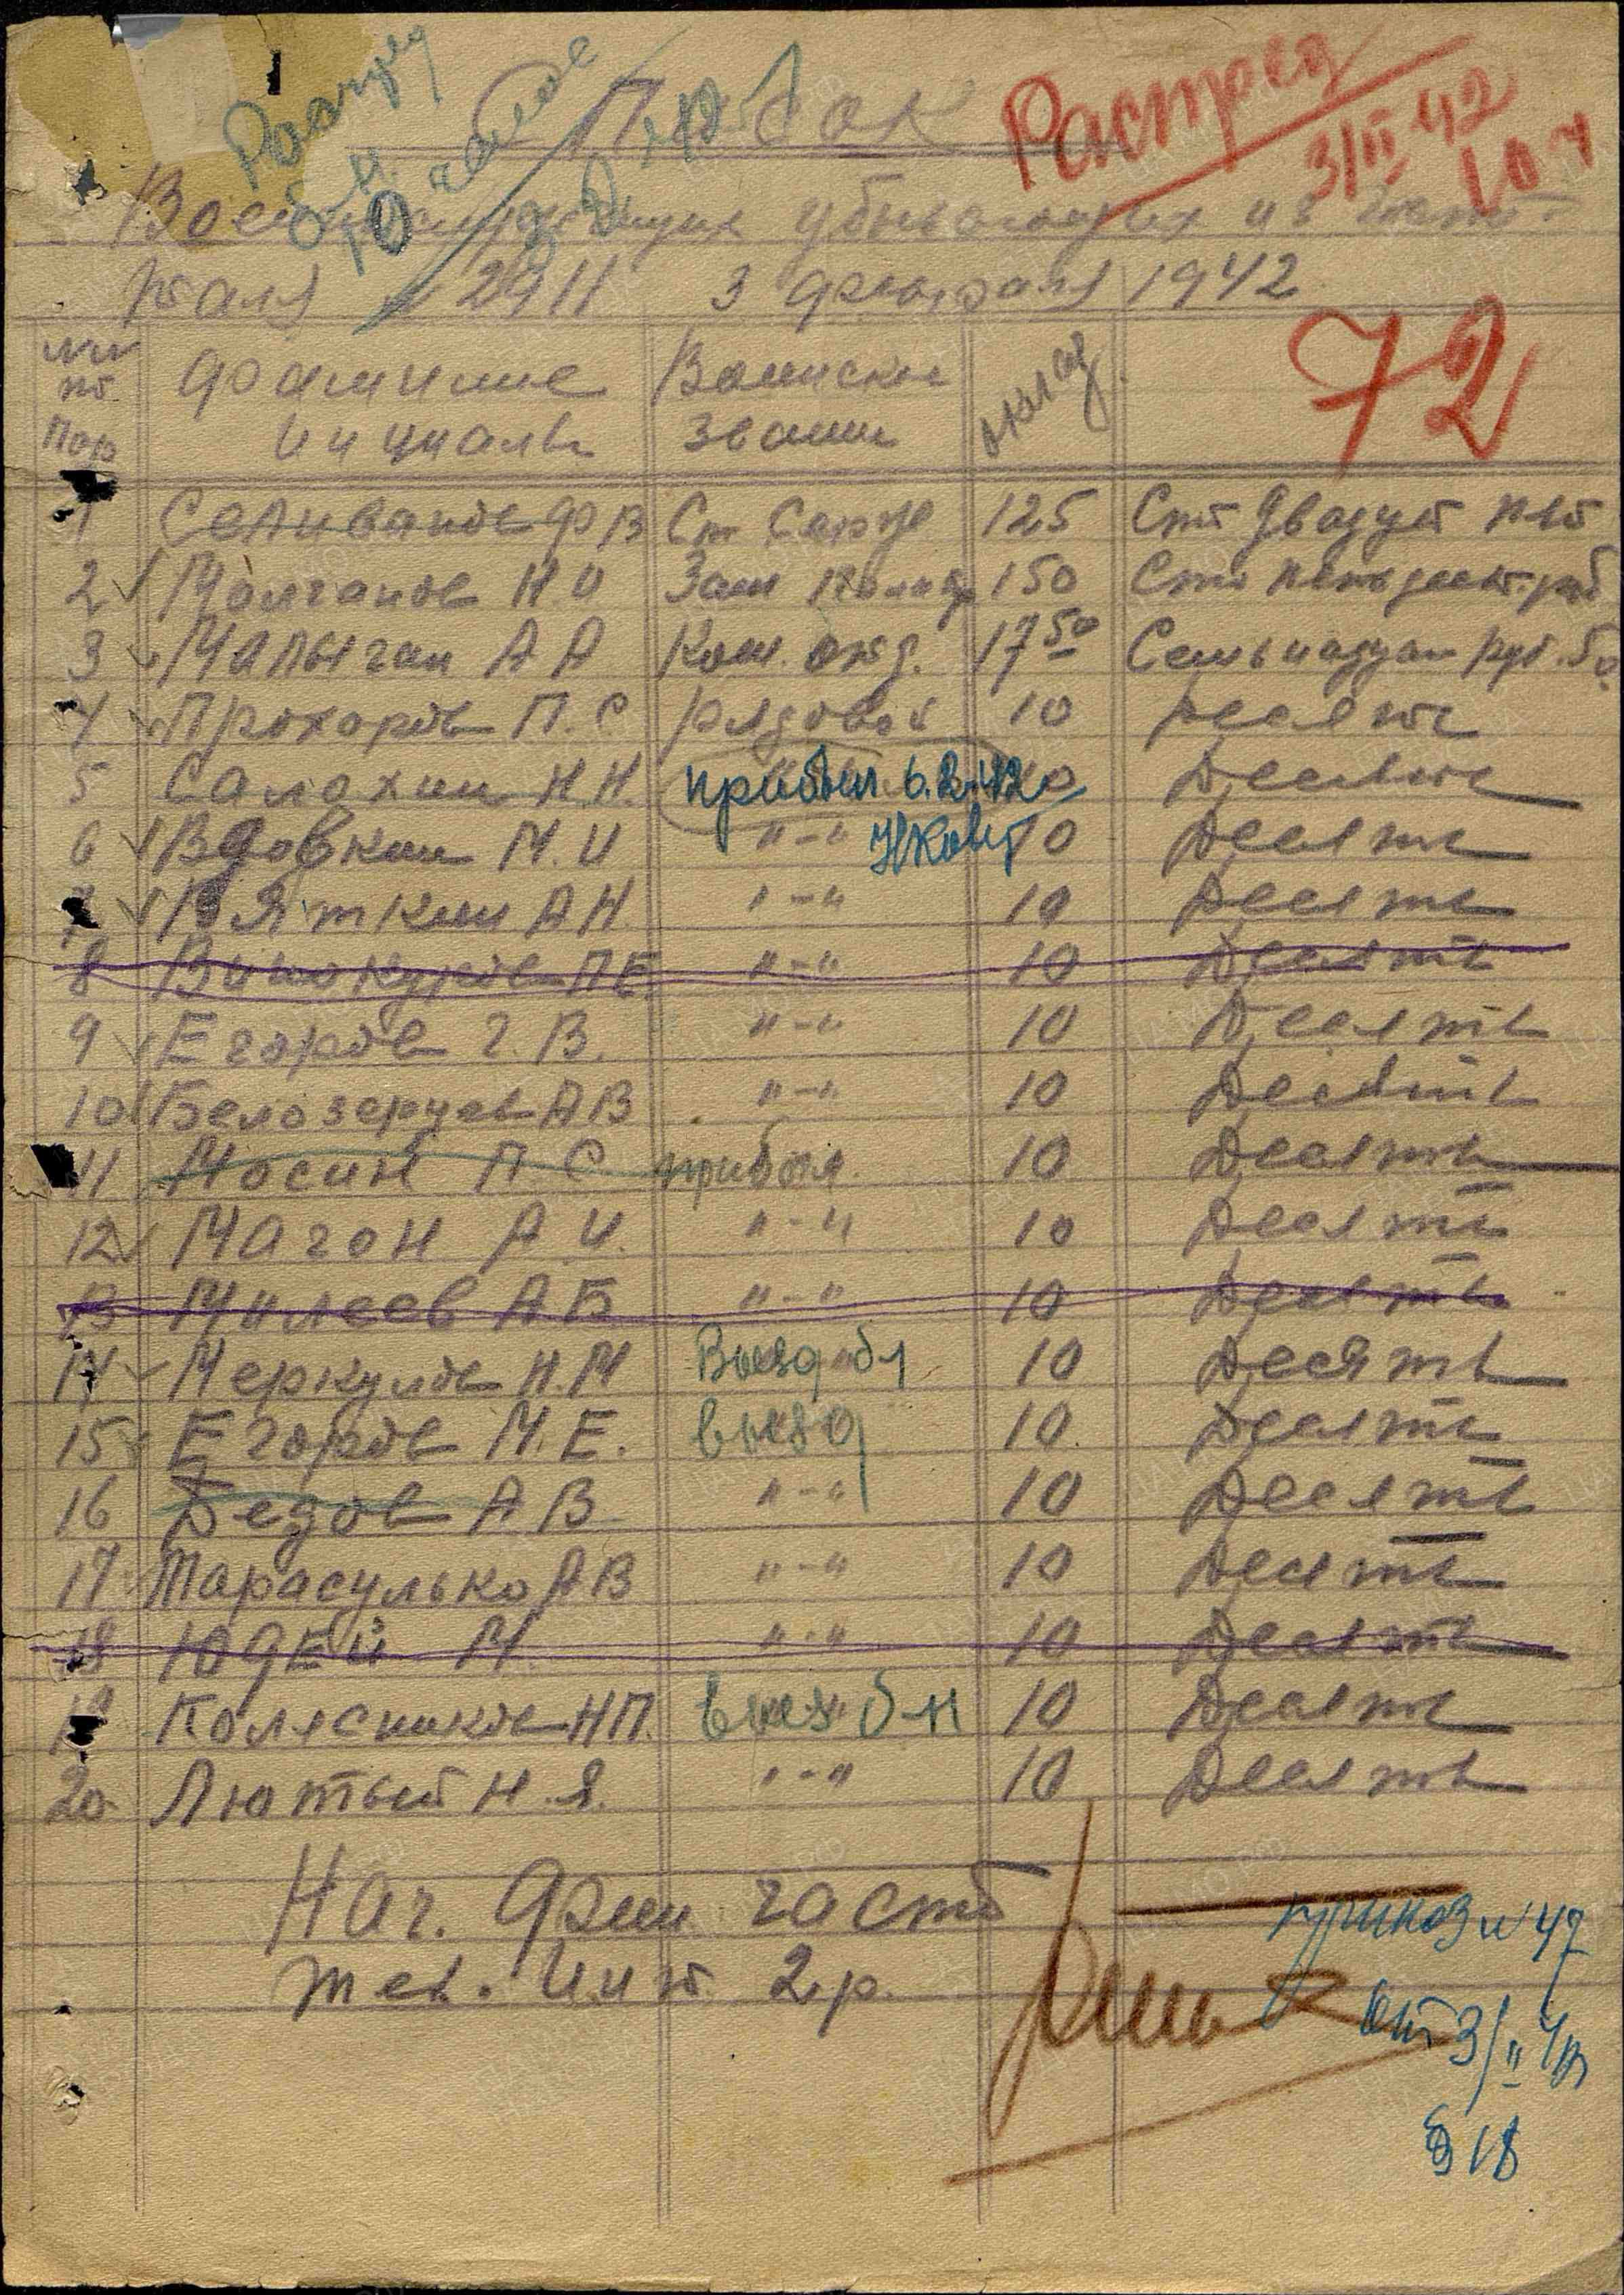 Список
Распред
3/II 42
10 ч
Военнослужащих убывающих из госпи
таля 2911 3 февраля 1942
72
№№ по пор Фамилие инициалы Воинские звание оклад
1 Селиванов Ф В Ст Серж 125 Сто двадцат пят
2 Молчанов Н. И Зам Политр 150 Сто пятьдесят. руб
3 Малыгин А А Ком. отд. 17 50 Семьнадцат руб. 50
4 Прохоров П. С рядовой 10 десять
5 Салахин Н Н. прибыл 6.2.42 10 Десять
6 Вдовкин М. И "-" 10 Десять
7 Вяткин А Н. "-" 10 Десять
8 Винокуров П Е. "-" 10 Десять
9 Егоров Г. В. "-" 10 Десять
10 Белозерцев А В "-" 10 Десять
11 Мосин П. С прибыл 10 Десять
12 Магон А. И. "-" 10 Десять
13 Милеев А Б "-" 10 Десять
14 Меркулов Н. М 10 Десять
15 Егоров М. Е. 10 Десять
16 Дедов А В "-" 10 Десять
17 Тарасулько А В "-" 10 Десять
18 Юдей М. "-" 10 Десять
19 Колясников Н П. 10 Десять
20 Лютый Н. Я. "-" 10 Десять
Нач. Фин части
тех. Инт. 2 р.
приказ № 47
от 3/II 42
§ 18